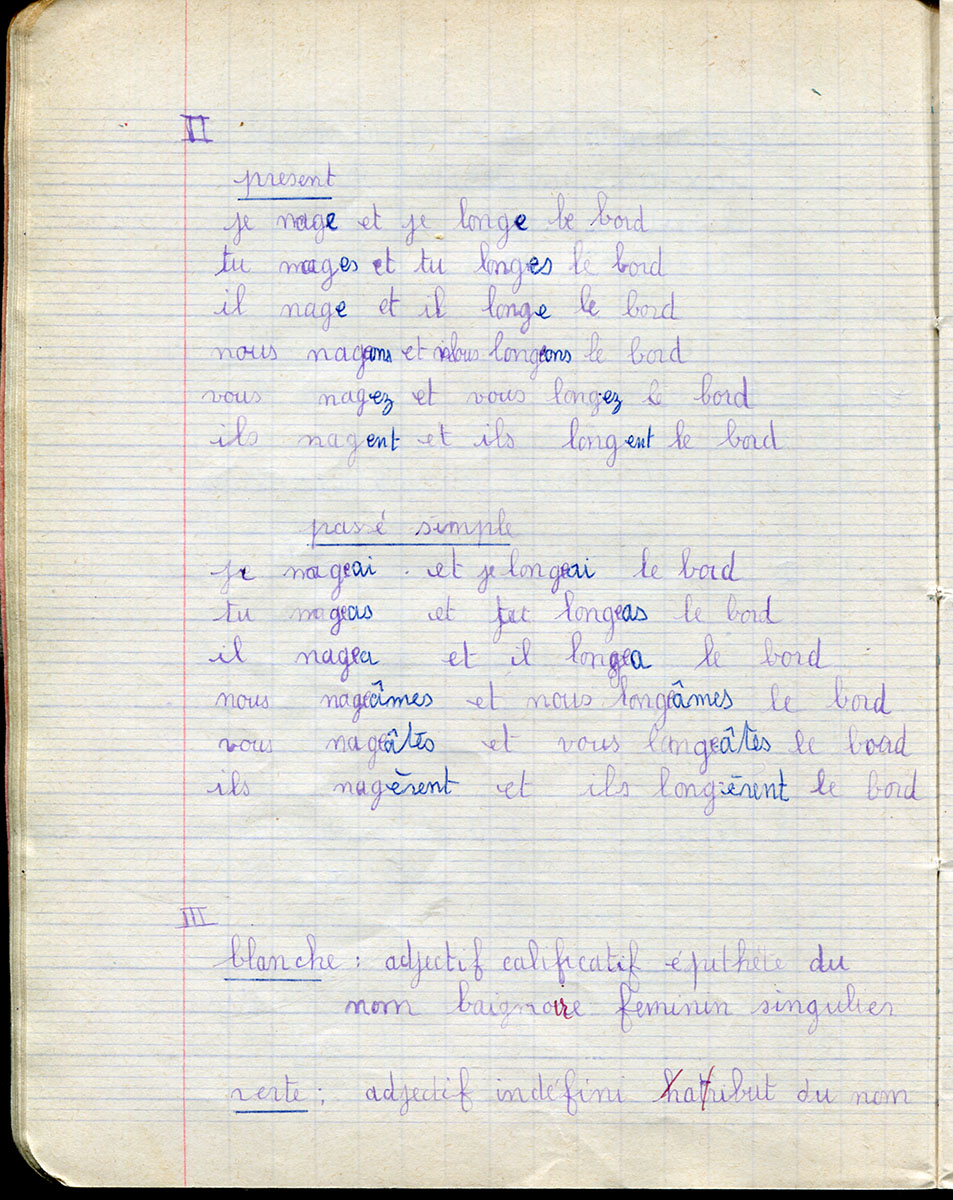 II
present
je nage et je longe le bord
tu nages et tu longes le bord
il nage et il longe le bord
nous nageons et nous longeons le bord
vous nagez et vous longez le bord
ils nagent et ils longent le bord
pasé simple
je nageai et je longeai le bord
tu nageas et tu longeas le bord
il nagea et il longea le bord
nous nageâmes et nous longeâmes le bord
vous nageâtes et vous longeâtes le bord
ils nagèrent et ils longèrent le bord
III
blanche : adjectif calificatif épithète du
nom baignoire feminin singulier
verte : adjectif indéfini attribut du nom